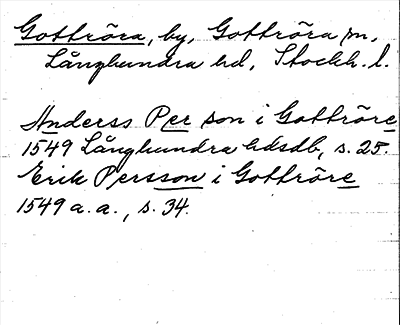 Gottröra, by, Gottröra sn,
Långhundra hd, Stockh. l.
Anderss Per son i Gottröre
1549 Långhundra hdsdb, s. 25.
Erik Persson i Gottröre
1549 a. a., s. 34.